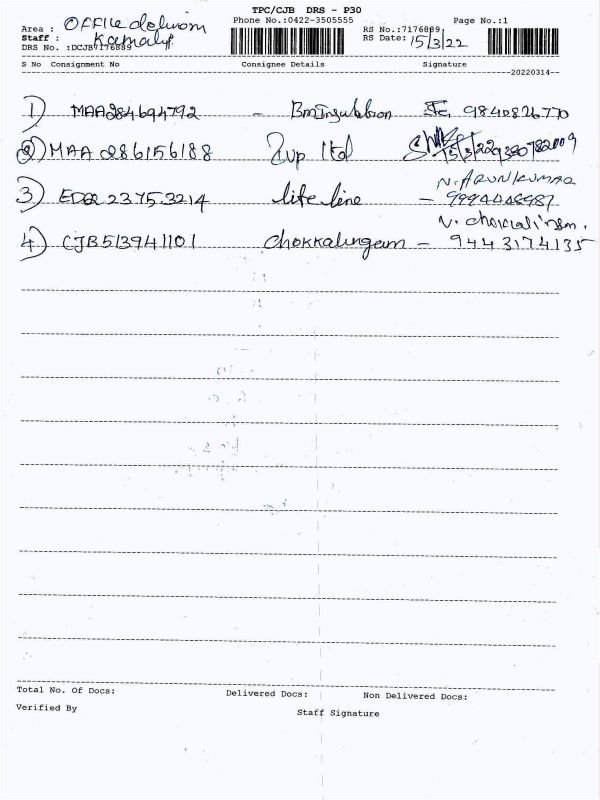 TPC/CJB DRS - P30
Area : OFFICE
Phone No.:0422-3505555
RS No.:7176889
Page No.:1
Staff : Kamaly
RS Date: 15/3/22
DRS No. :DCJB7176889
S No Consignment No Consignee Details Signature
20220314
1) MAA284694792 - Bm Insulation 9840826770
2) MAA 286156188 Zvp ltd 15/3/22
3) 23753214 life line N. ARUNKUMAR
- 9994448987
4) CJB513941101 chokkalingam - 9443174135
Total No. Of Docs: Delivered Docs: Non Delivered Docs:
Verified By Staff Signature